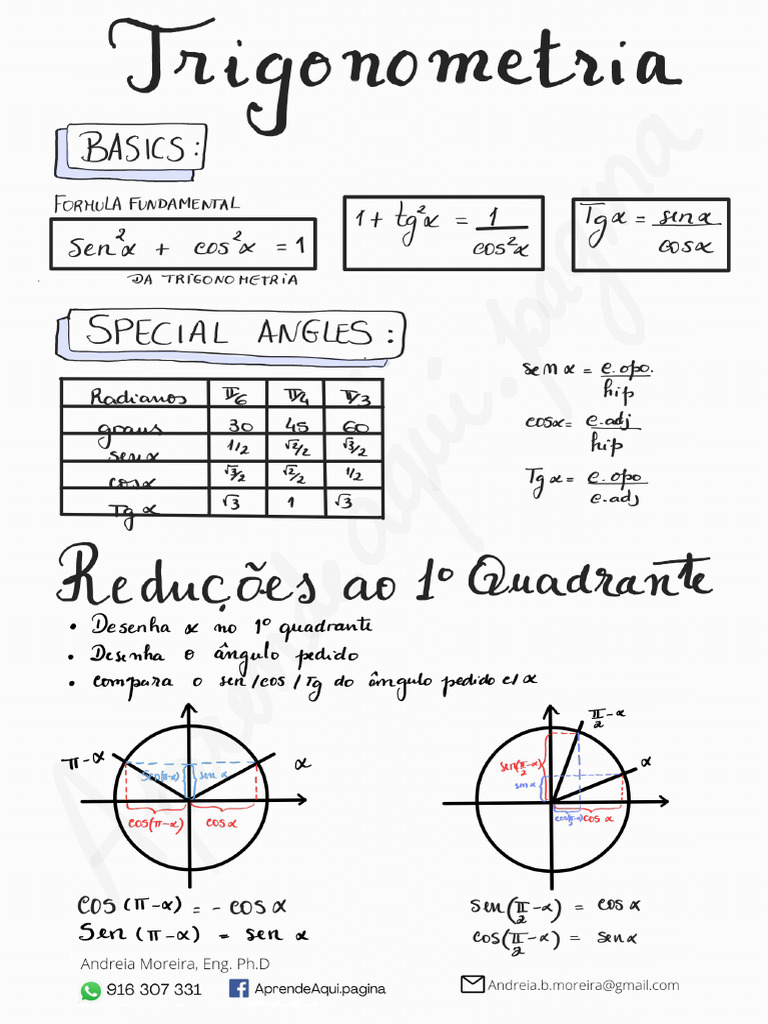 Trigonometria
BASICS:
FORMULA FUNDAMENTAL
sen²α + cos²α = 1
DA TRIGONOMETRIA
1 + tg²α = 1/cos²α
Tgα = sinα/cosα
SPECIAL ANGLES:
Radianos π/6 π/4 π/3
graus 30 45 60
senα 1/2 √2/2 √3/2
cosα √3/2 √2/2 1/2
Tgα √3 1 √3
senα = c.opo./hip
cosα = c.adj/hip
Tgα = c.opo/c.adj
Reduções ao 1º Quadrante
• Desenha α no 1º quadrante
• Desenha o ângulo pedido
• compara o sen/cos/Tg do ângulo pedido c/ α
π-α
α
sen(π-α)
sen α
cos(π-α)
cosα
π/2-α
α
sen(π/2-α)
sinα
cos(π/2-α)
cos α
cos (π-α) = - cos α
Sen (π-α) = sen α
sen(π/2-α) = cos α
cos(π/2-α) = senα
Andreia Moreira, Eng. Ph.D
916 307 331
AprendeAqui.pagina
Andreia.b.moreira@gmail.com
Aprende aqui.pagina